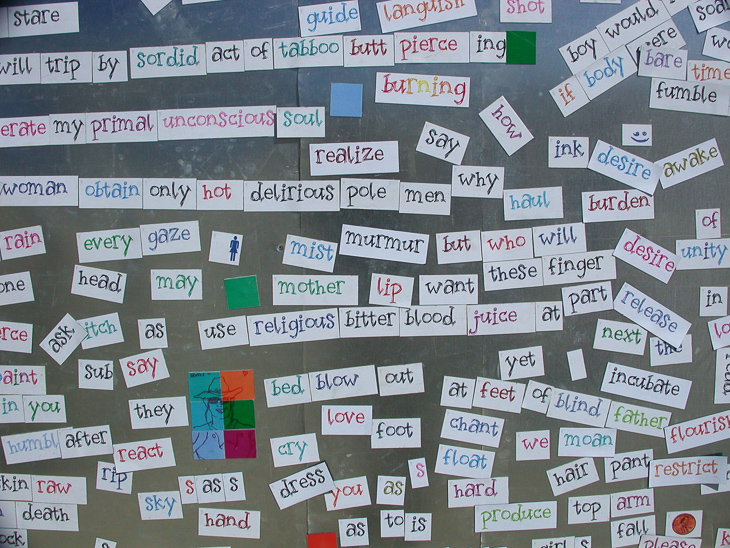 stare guide languish shot soar
boy would
if body were bare time
fumble
will trip by sordid act of tabboo butt pierce ing
burning
erate my primal unconscious soul
how
say
realize
ink desire awake
why
woman obtain only hot delirious pole men
haul burden
of
rain every gaze
mist murmur but who will
desire unity
one head may mother lip want these finger
part release in
erce ask itch as use religious bitter blood juice at
next the
sub say
yet
aint
bed blow out
incubate
in you they
love foot
at feet of blind father
flourish
humbl after react
cry
chant
we moan
float
rip
skin raw
sky s as s
dress you as s
hard
hair pant restrict
death
hand
as to is
produce
top arm
fall
ock
s
girl s please